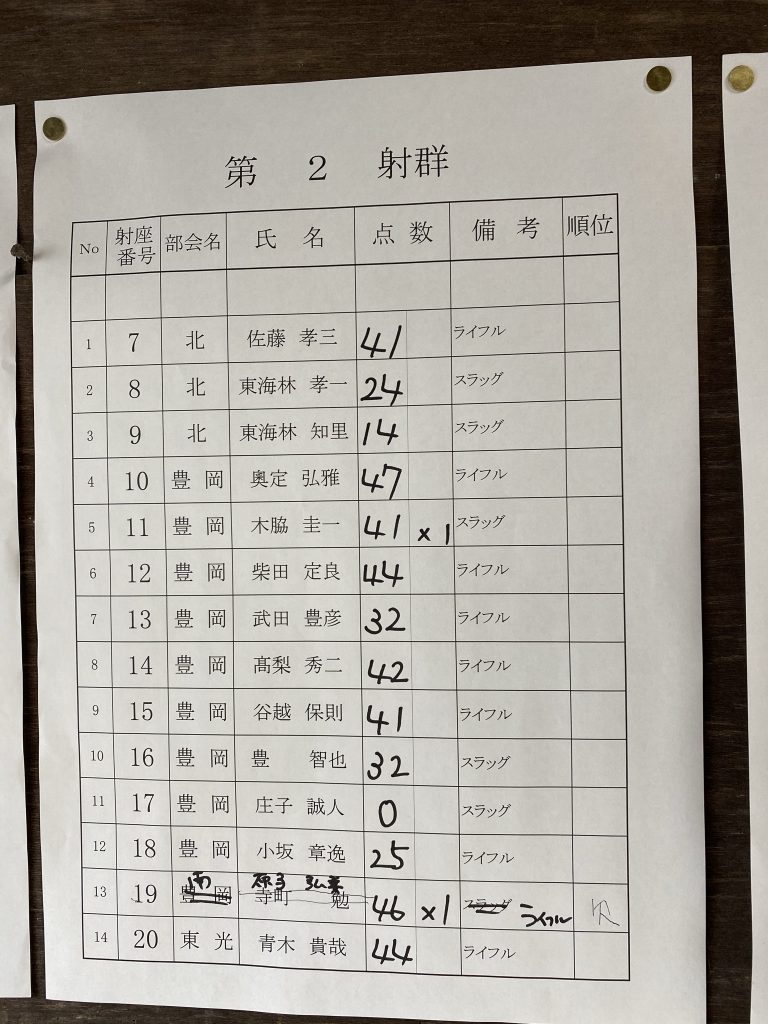 第 2 射群
No 射座番号 部会名 氏 名 点 数 備 考 順位
1 7 北 佐藤 孝三 41 ライフル
2 8 北 東海林 孝一 24 スラッグ
3 9 北 東海林 知里 14 スラッグ
4 10 豊 岡 奥定 弘雅 47 ライフル
5 11 豊 岡 木脇 圭一 41 x 1 スラッグ
6 12 豊 岡 柴田 定良 44 ライフル
7 13 豊 岡 武田 豊彦 32 ライフル
8 14 豊 岡 髙梨 秀二 42 ライフル
9 15 豊 岡 谷越 保則 41 ライフル
10 16 豊 岡 豊 智也 32 スラッグ
11 17 豊 岡 庄子 誠人 0 スラッグ
12 18 豊 岡 小坂 章逸 25 ライフル
南 原子
13 19 豊 岡 寺町 勉 46 x1 スラッグ ライフル
14 20 東 光 青木 貴哉 44 ライフル